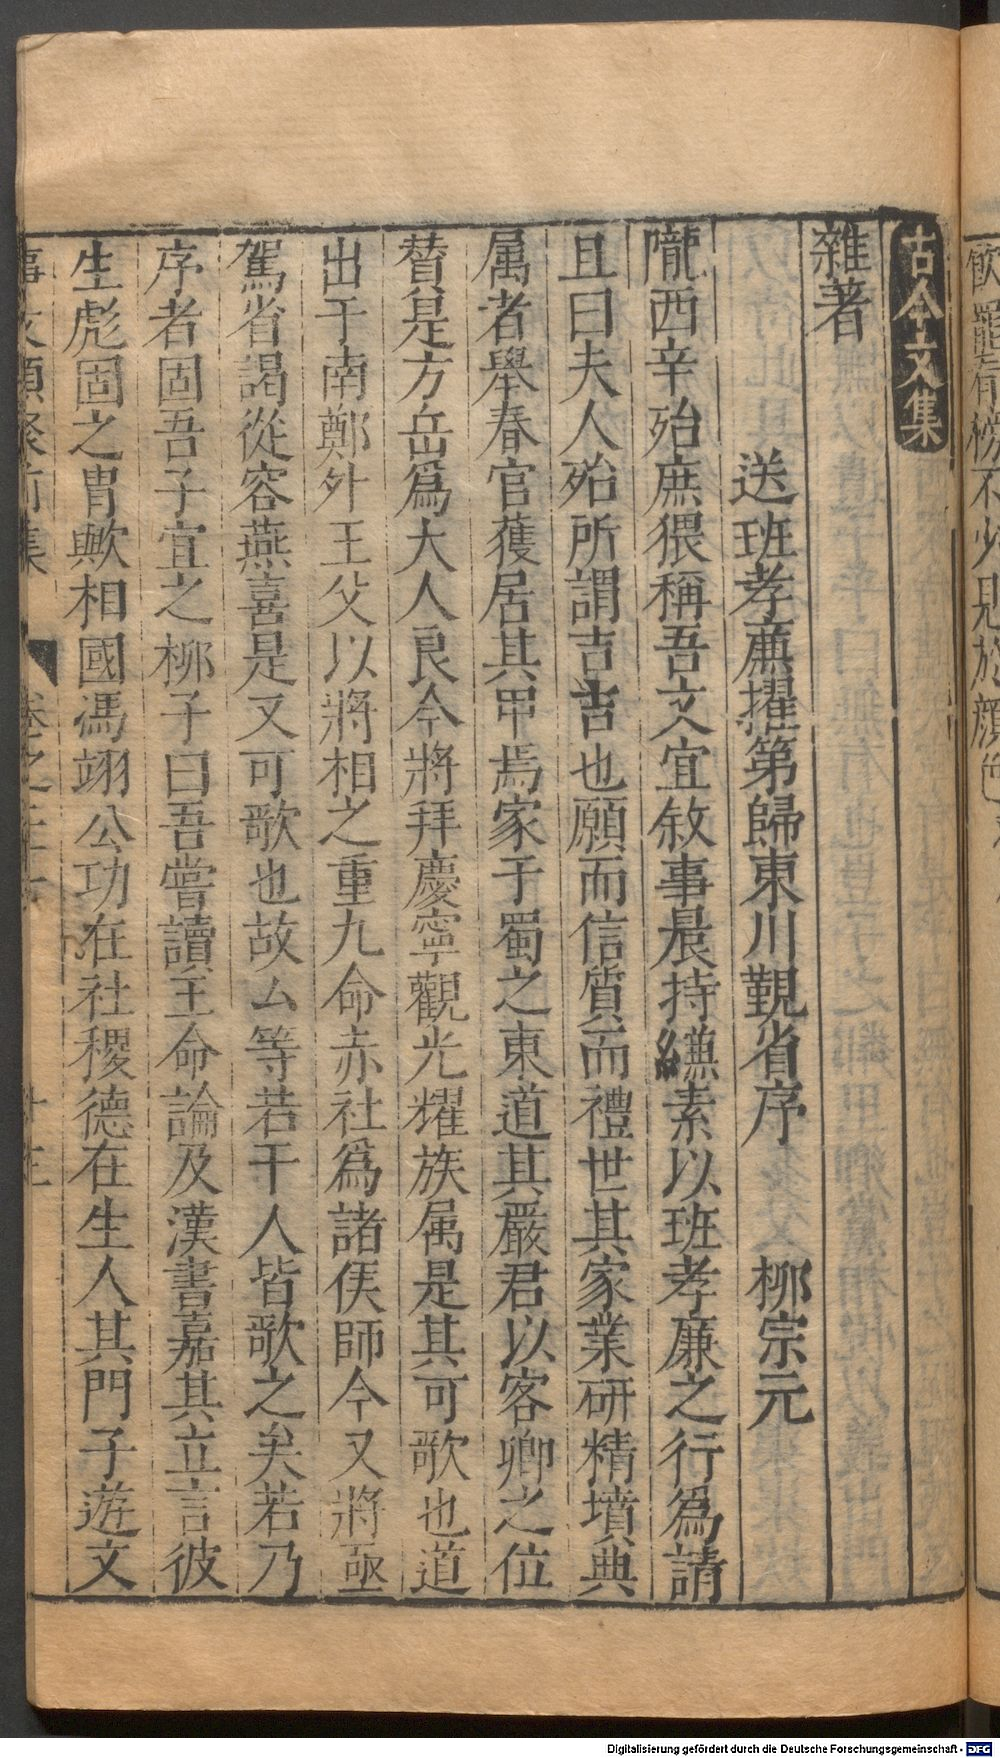 飲罷
不必見於顔色
古今文集
雜著
送班孝廉擢第歸東川覲省序 柳宗元
隴西辛殆庶猥稱吾文宜敘事晨持縑素以班孝廉之行爲請
且曰夫人殆所謂吉吉也願而信質而禮世其家業研精墳典
属者舉春官獲居其甲焉家于蜀之東道其嚴君以客卿之位
賛是方岳爲大人良今將拜慶寧觀光耀族属是其可歌也道
出于南鄭外王父以將相之重九命赤社爲諸侯師今又將亟
駕省謁從容燕喜是又可歌也故厶等若干人皆歌之矣若乃
序者固吾子宜之柳子曰吾嘗讀王命論及漢書嘉其立言彼
生彪固之胄歟相國馮翊公功在社稷德在生人其門子遊文
事文類聚前集 卷之二十
Digitalisierung gefördert durch die Deutsche Forschungsgemeinschaft - DFG